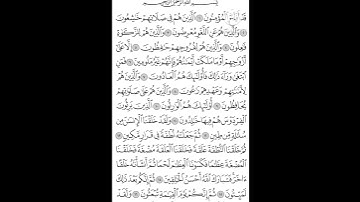 بِسْمِ ٱللَّهِ ٱلرَّحْمَٰنِ ٱلرَّحِيمِ
قَدْ أَفْلَحَ ٱلْمُؤْمِنُونَ ۝ ٱلَّذِينَ هُمْ فِى صَلَاتِهِمْ خَٰشِعُونَ
۝ وَٱلَّذِينَ هُمْ عَنِ ٱللَّغْوِ مُعْرِضُونَ ۝ وَٱلَّذِينَ هُمْ لِلزَّكَوٰةِ
فَٰعِلُونَ ۝ وَٱلَّذِينَ هُمْ لِفُرُوجِهِمْ حَٰفِظُونَ ۝ إِلَّا عَلَىٰٓ
أَزْوَٰجِهِمْ أَوْ مَا مَلَكَتْ أَيْمَٰنُهُمْ فَإِنَّهُمْ غَيْرُ مَلُومِينَ ۝ فَمَنِ
ٱبْتَغَىٰ وَرَآءَ ذَٰلِكَ فَأُو۟لَٰٓئِكَ هُمُ ٱلْعَادُونَ ۝ وَٱلَّذِينَ هُمْ
لِأَمَٰنَٰتِهِمْ وَعَهْدِهِمْ رَٰعُونَ ۝ وَٱلَّذِينَ هُمْ عَلَىٰ صَلَوَٰتِهِمْ
يُحَافِظُونَ ۝ أُو۟لَٰٓئِكَ هُمُ ٱلْوَٰرِثُونَ ۝ ٱلَّذِينَ يَرِثُونَ
ٱلْفِرْدَوْسَ هُمْ فِيهَا خَٰلِدُونَ ۝ وَلَقَدْ خَلَقْنَا ٱلْإِنسَٰنَ مِن
سُلَٰلَةٍ مِّن طِينٍ ۝ ثُمَّ جَعَلْنَٰهُ نُطْفَةً فِى قَرَارٍ مَّكِينٍ ۝
ثُمَّ خَلَقْنَا ٱلنُّطْفَةَ عَلَقَةً فَخَلَقْنَا ٱلْعَلَقَةَ مُضْغَةً فَخَلَقْنَا
ٱلْمُضْغَةَ عِظَٰمًا فَكَسَوْنَا ٱلْعِظَٰمَ لَحْمًا ثُمَّ أَنشَأْنَٰهُ خَلْقًا
ءَاخَرَ فَتَبَارَكَ ٱللَّهُ أَحْسَنُ ٱلْخَٰلِقِينَ ۝ ثُمَّ إِنَّكُم بَعْدَ ذَٰلِكَ
لَمَيِّتُونَ ۝ ثُمَّ إِنَّكُمْ يَوْمَ ٱلْقِيَٰمَةِ تُبْعَثُونَ ۝ وَلَقَدْ